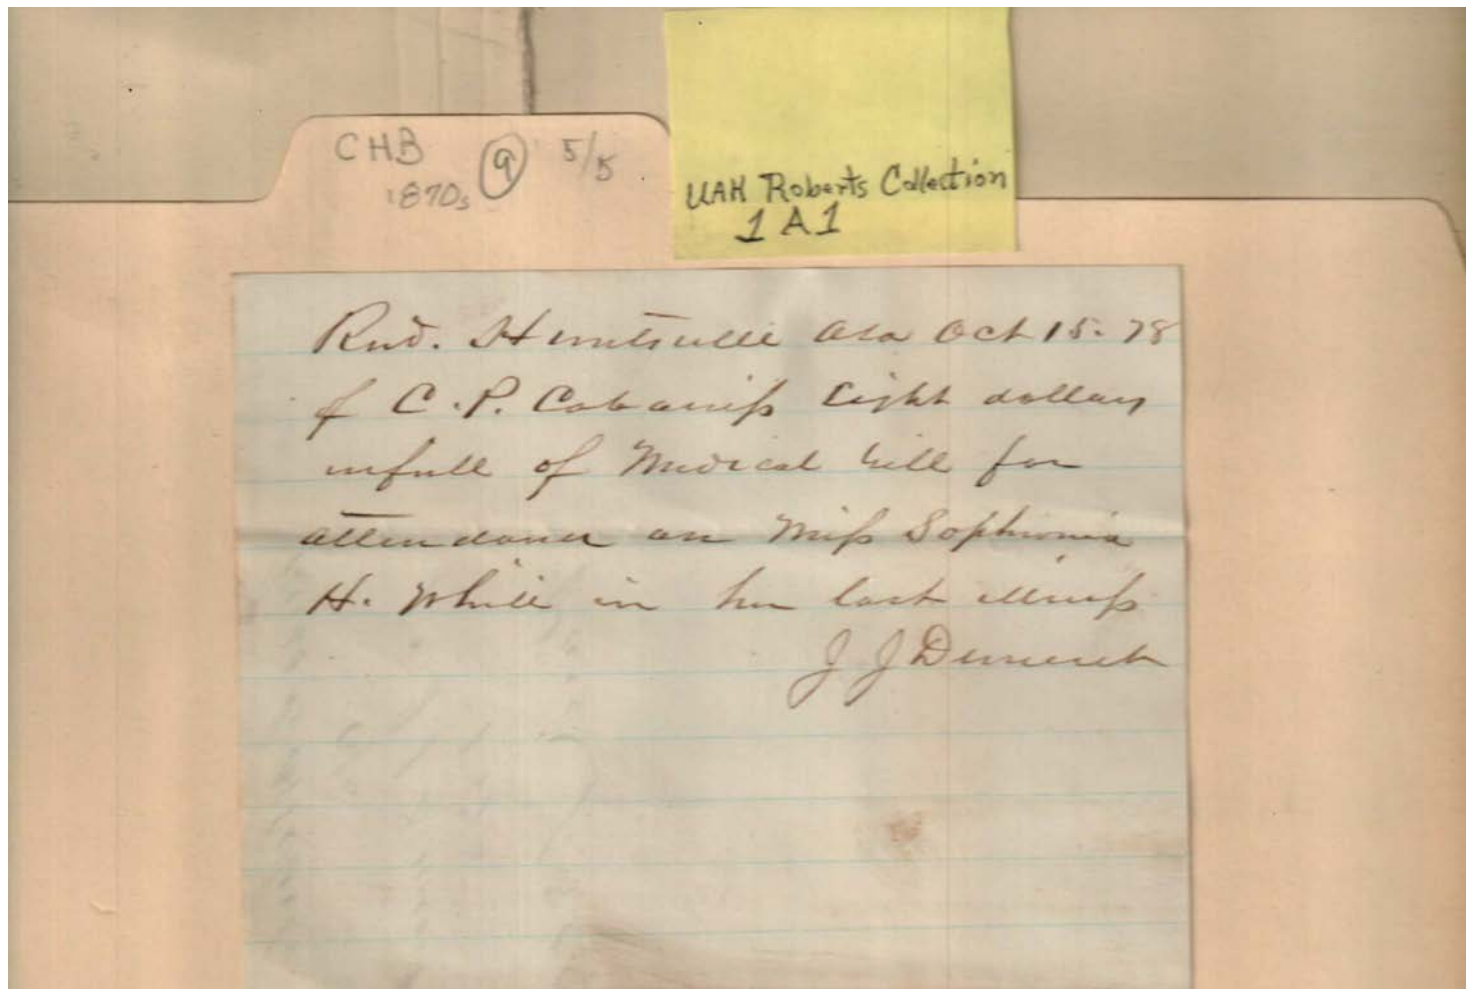 CHB 9 5/5
1870s
UAH Roberts Collection
1 A 1
Recd. Huntsville Ala Oct 15. 78
of C. P. Cabaniss Eight dollars
in full of Medical bill for
attendance on Miss Sophronia
H. White in her last illness
J J Dement